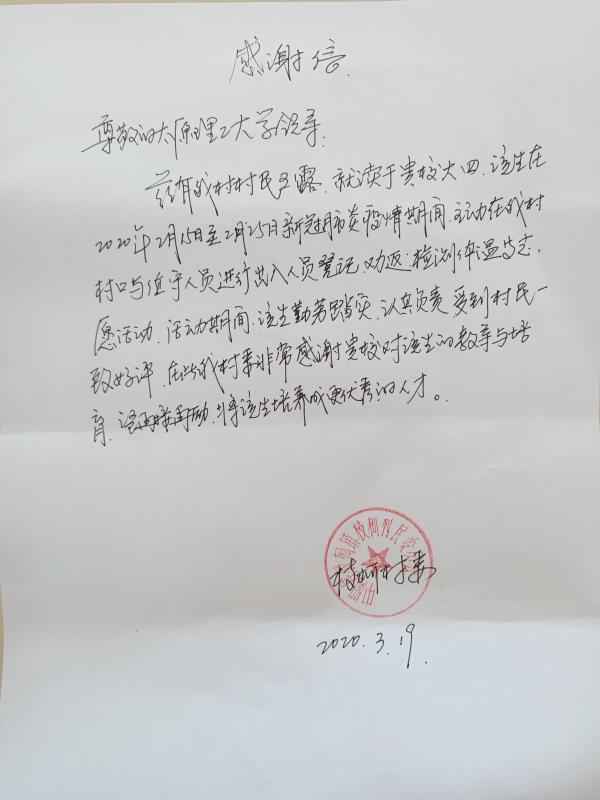 感谢信
尊敬的太原理工大学领导:
兹有我村村民王露,就读于贵校大四,该生在
2020年2月15日至2月25日新冠肺炎疫情期间,主动在我村
村口与值守人员进行出入人员登记,劝返,检测体温等志
愿活动,活动期间,该生勤劳踏实,认真负责,受到村民一
致好评,在此我村委非常感谢贵校对该生的教导与培
育,请再接再励,将该生培养成更优秀的人才。
村委
2020.3.19